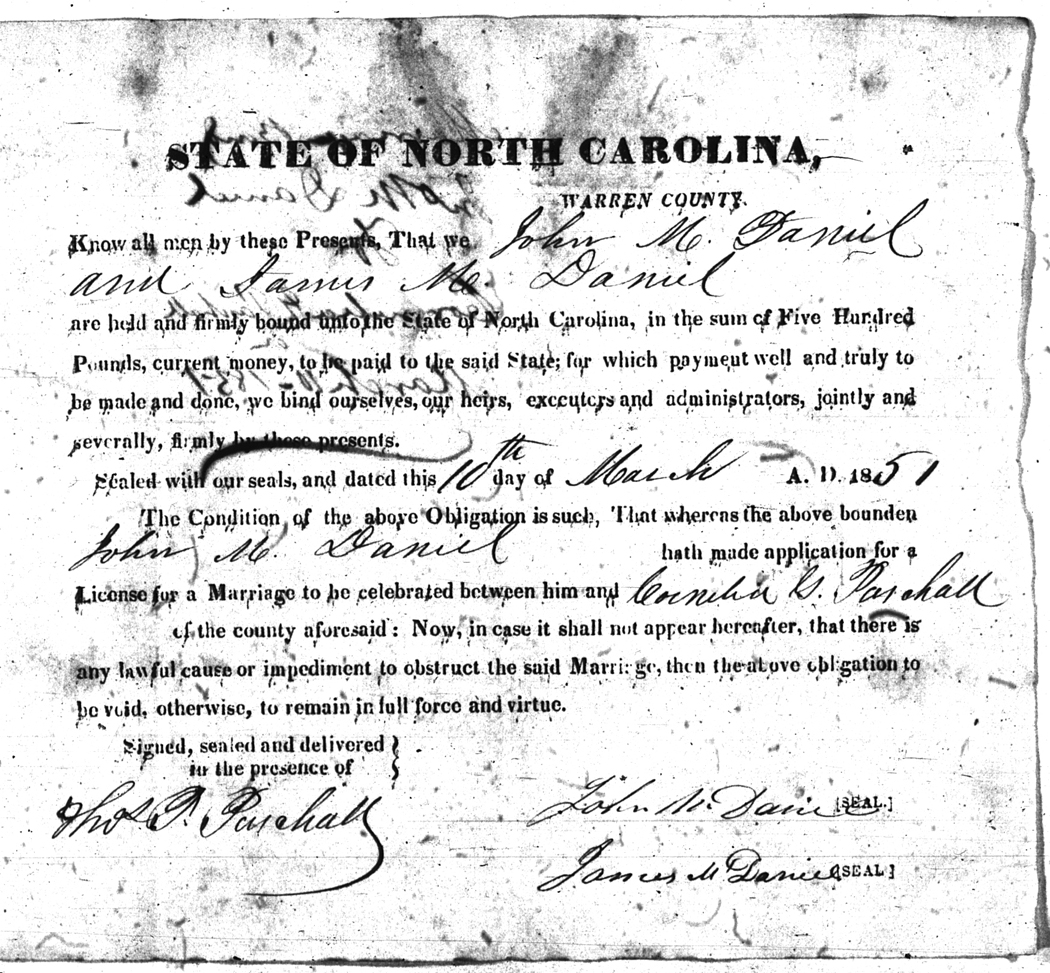 STATE OF NORTH CAROLINA,
WARREN COUNTY.
Know all men by these Presents, That we John M. Daniel
and James M. Daniel
are held and firmly bound unto the State of North Carolina, in the sum of Five Hundred
Pounds, current money, to be paid to the said State; for which payment well and truly to
be made and done, we bind ourselves, our heirs, executers and administrators, jointly and
severally, firmly by these presents.
Sealed with our seals, and dated this 10th day of March A. D. 1851
The Condition of the above Obligation is such, That whereas the above bounden
John M. Daniel hath made application for a
License for a Marriage to be celebrated between him and Cornelia G. Paschall
of the county aforesaid: Now, in case it shall not appear hereafter, that there is
any lawful cause or impediment to obstruct the said Marriage, then the above obligation to
be void, otherwise, to remain in full force and virtue.
Signed, sealed and delivered
in the presence of
Thos P. Paschall
John M. Daniel [SEAL.]
James M Daniel [SEAL]